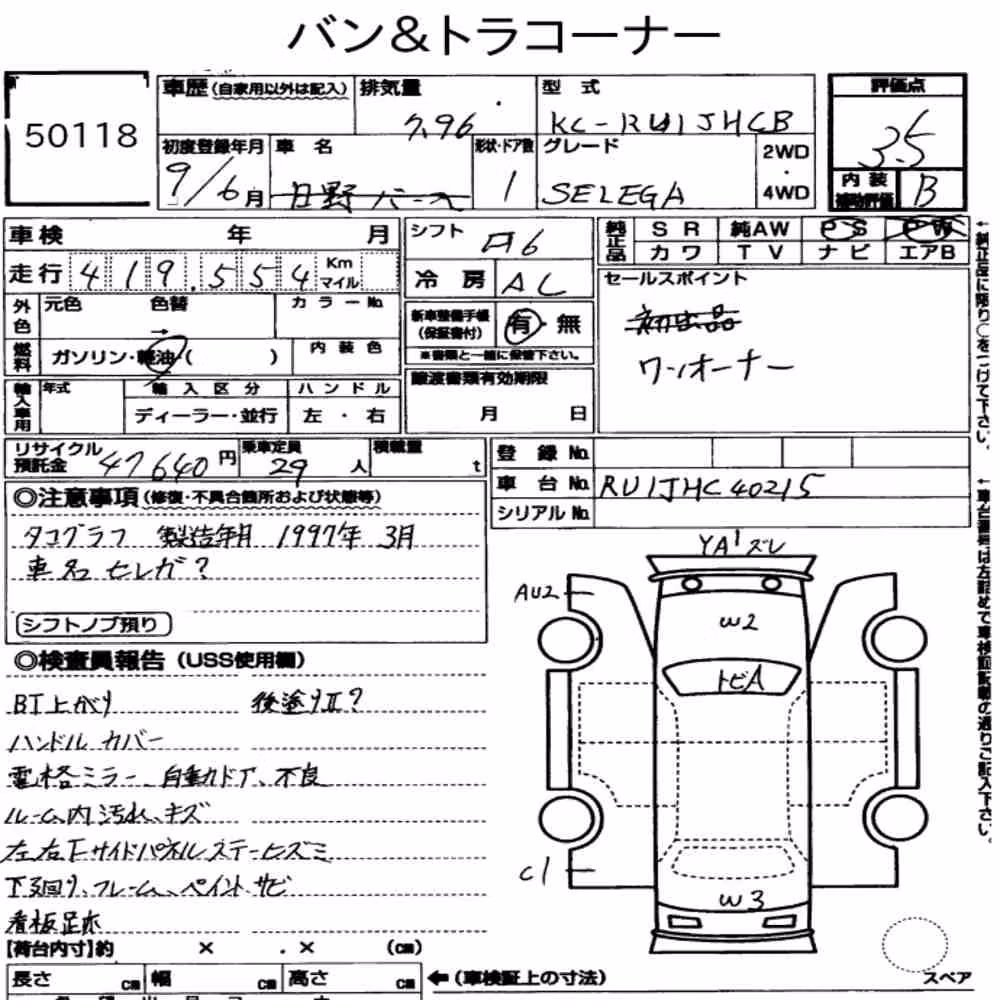 バン&トラコーナー
50118
車歴 (自家用以外は記入) 排気量 型式 評価点
7.96 KC-RU1JHCB 3.5
初度登録年月 車名 形状・ドア数 グレード 2WD・4WD
9/6月 日野バース 1 SELEGA
内装補助評価 B
車検 年 月
シフト F6
純正品 SR 純AW PS PW
カワ TV ナビ エアB
走行 419,554 Km マイル
冷房 AC
セールスポイント
初出品
ワンオーナー
外色 元色 色替 → カラーNo.
新車整備手帳(保証書付) 有・無
※書類と一緒に保管下さい。
燃料 ガソリン・軽油( ) 内装色
輸入車用 年式 輸入区分 ハンドル
ディーラー・並行 左・右
譲渡書類有効期限
月 日
リサイクル預託金 47640円 乗車定員 29人 積載量 t
登録No.
車台No. RU1JHC40215
シリアルNo.
◎注意事項(修復・不具合箇所および状態等)
タコグラフ 製造年月 1997年 3月
車名 セレガ?
シフトノブ預り
◎検査員報告(USS使用欄)
BT上がり 後塗りII?
ハンドルカバー
電格ミラー、自動ドア、不良
ルーム内汚れ、キズ
左右下サイドパネルステーヒズミ
下廻り、フレーム、ペイントサビ
看板足赤
【荷台内寸】約 × . × (cm)
長さ cm 幅 cm 高さ cm
←(車検証上の寸法)
YA1ズレ
AU2
W2
トビA
C1
W3
スペア
↑純正品に限り○をつけて下さい。
↑車台番号は左詰めで車検証記載の通りご記入下さい。